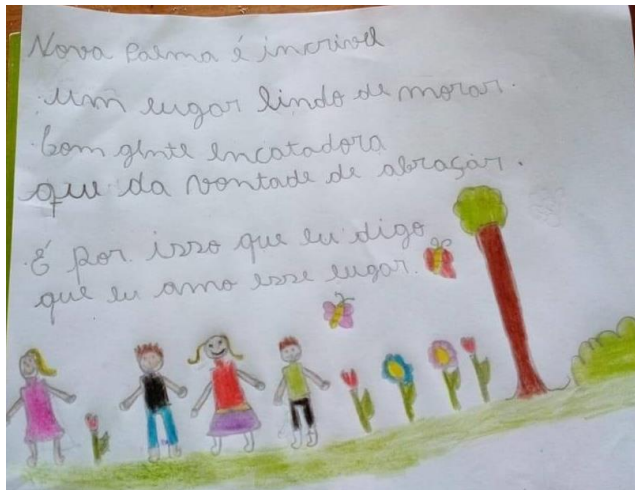 Nova Palma é incrivel
um lugar lindo de morar.
Com gente encatadora
que da vontade de abraçar.
É por isso que eu digo
que eu amo esse lugar.